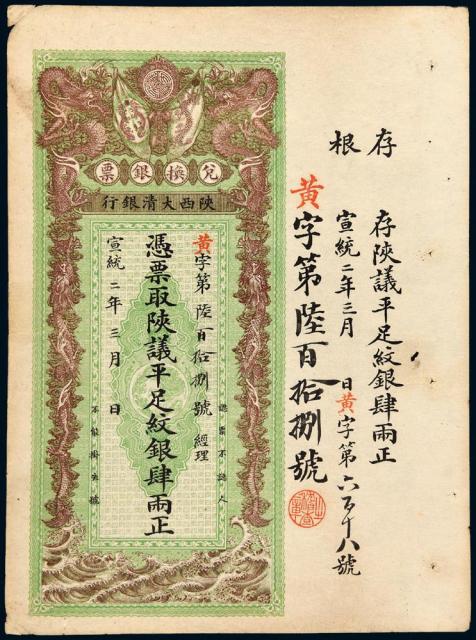 存根
存陝議平足紋銀肆兩正
宣統二年三月　日黃字第六百十八號
黃字第陸百拾捌號
兌換銀票
陝西大清銀行
認票不認人
黃字第陸百拾捌號 經理
憑票取陝議平足紋銀肆兩正
宣統二年三月　日